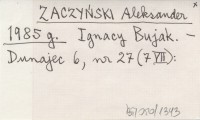 ZACZYŃSKI Aleksander
1985 g. Ignacy Bujak. –
Dunajec 6, nr 27 (7/VII):